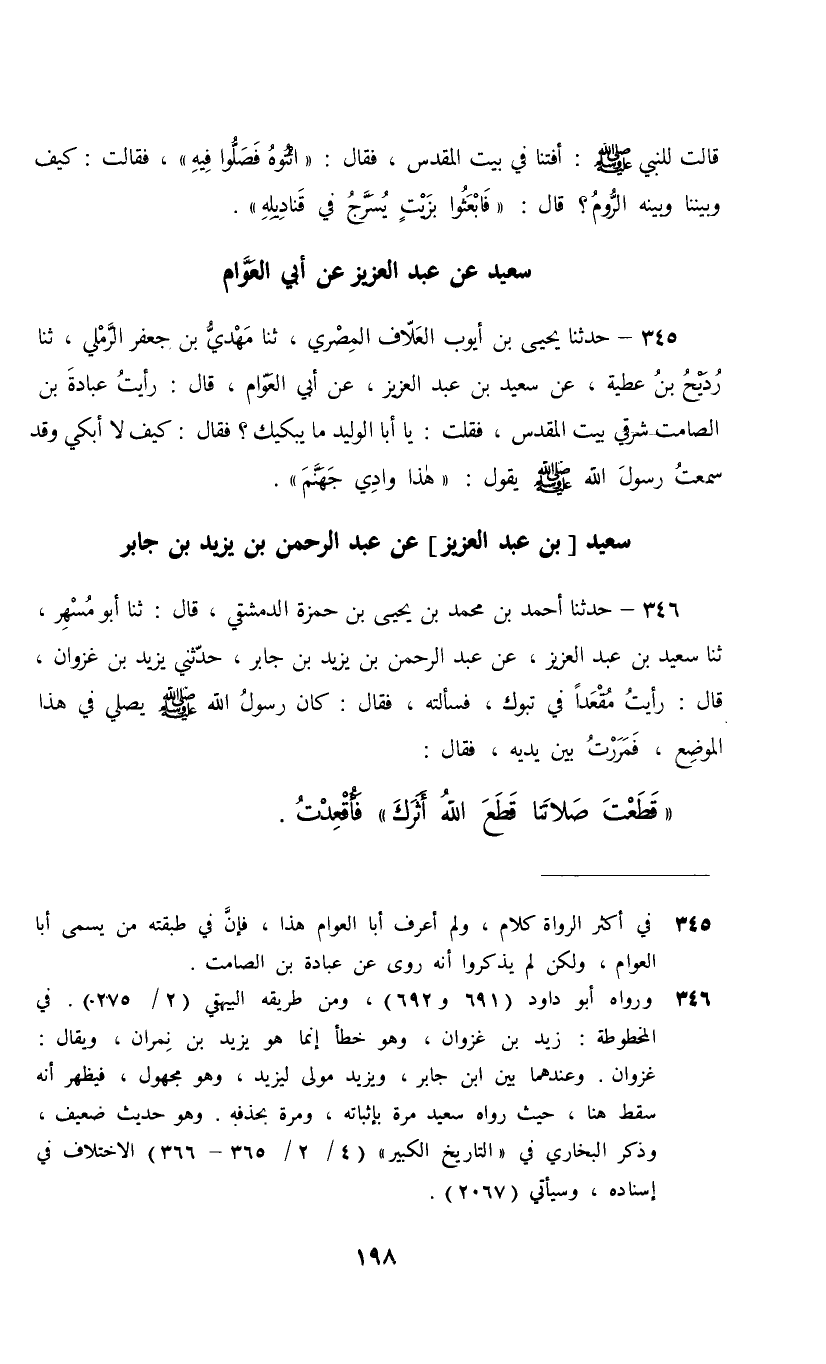 قالت للنبي ﷺ : أفتنا في بيت المقدس ، فقال : « ائْتُوهُ فَصَلُّوا فِيهِ » ، فقالت : كيف
وبيننا وبينه الرُّومُ؟ قال : « فَابْعَثُوا بِزَيْتٍ يُسَرَّجُ في قَنادِيلِهِ » .
سعيد عن عبد العزيز عن أبي العَوَّام
٣٤٥ – حدثنا يحيى بن أيوب العَلّاف المِصْري ، ثنا مَهْديُّ بن جعفر الرَّمْلي ، ثنا
رُدَيْحُ بنُ عطية ، عن سعيد بن عبد العزيز ، عن أبي العَوّام ، قال : رأيتُ عبادةَ بن
الصامت شرقي بيت المقدس ، فقلت : يا أبا الوليد ما يبكيك ؟ فقال : كيف لا أبكي وقد
سمعتُ رسولَ الله ﷺ يقول : « هٰذا وادِي جَهَنَّمَ » .
سعيد [ بن عبد العزيز ] عن عبد الرحمن بن يزيد بن جابر
٣٤٦ – حدثنا أحمد بن محمد بن يحيى بن حمزة الدمشقي ، قال : ثنا أبو مُسْهِر ،
ثنا سعيد بن عبد العزيز ، عن عبد الرحمن بن يزيد بن جابر ، حدّثني يزيد بن غزوان ،
قال : رأيتُ مُقْعَداً في تبوك ، فسألته ، فقال : كان رسولُ الله ﷺ يصلي في هذا
الموضِع ، فَمَرَرْتُ بين يديه ، فقال :
« قَطَعْتَ صَلاتَنا قَطَعَ اللهُ أَثَرَكَ » فَأُقْعِدْتُ .
٣٤٥ في أكثر الرواة كلام ، ولم أعرف أبا العوام هذا ، فإنَّ في طبقته من يسمى أبا
العوام ، ولكن لم يذكروا أنه روى عن عبادة بن الصامت .
٣٤٦ ورواه أبو داود (٦٩١ و ٦٩٢) ، ومن طريقه البيهقي (٢ / ٢٧٥) . في
المخطوطة : زيد بن غزوان ، وهو خطأ إنما هو يزيد بن نِمران ، ويقال :
غزوان . وعندهما بين ابن جابر ، ويزيد مولى ليزيد ، وهو مجهول ، فيظهر أنه
سقط هنا ، حيث رواه سعيد مرة بإثباته ، ومرة بحذفه . وهو حديث ضعيف ،
وذكر البخاري في « التاريخ الكبير » (٤ / ٢ / ٣٦٥ – ٣٦٦) الاختلاف في
إسناده ، وسيأتي (٢٠٦٧) .
١٩٨